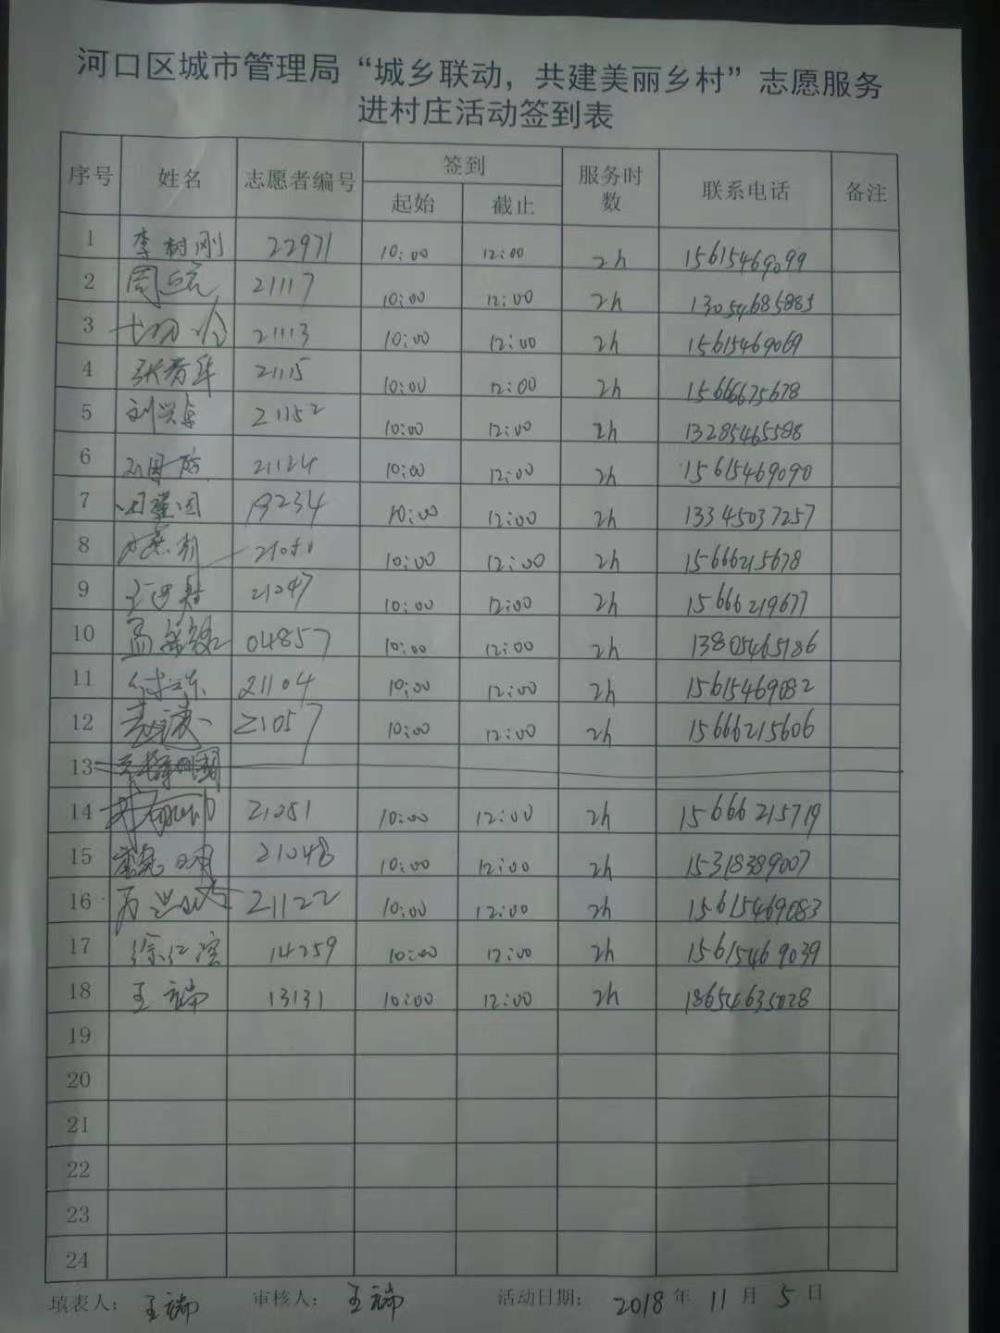 河口区城市管理局“城乡联动，共建美丽乡村”志愿服务
进村庄活动签到表
序号 姓名 志愿者编号 签到 服务时数 联系电话 备注
起始 截止
1 李树刚 22971 10:00 12:00 2h 15615469099
2 21117 10:00 12:00 2h 13054685885
3 21113 10:00 12:00 2h 15615469069
4 21115 10:00 12:00 2h 15666675678
5 21152 10:00 12:00 2h 13285465588
6 21124 10:00 12:00 2h 15615469090
7 19234 10:00 12:00 2h 13345037257
8 10:00 12:00 2h 15666215678
9 21047 10:00 12:00 2h 15666219677
10 04857 10:00 12:00 2h 13805465186
11 21104 10:00 12:00 2h 15615469082
12 21057 10:00 12:00 2h 15666215606
13
14 21051 10:00 12:00 2h 15666215719
15 21048 10:00 12:00 2h 15318389007
16 21122 10:00 12:00 2h 15615469083
17 14259 10:00 12:00 2h 15615469039
18 王瑞 13131 10:00 12:00 2h 18654635028
19
20
21
22
23
24
填表人： 王瑞 审核人： 王瑞 活动日期： 2018 年 11 月 5 日